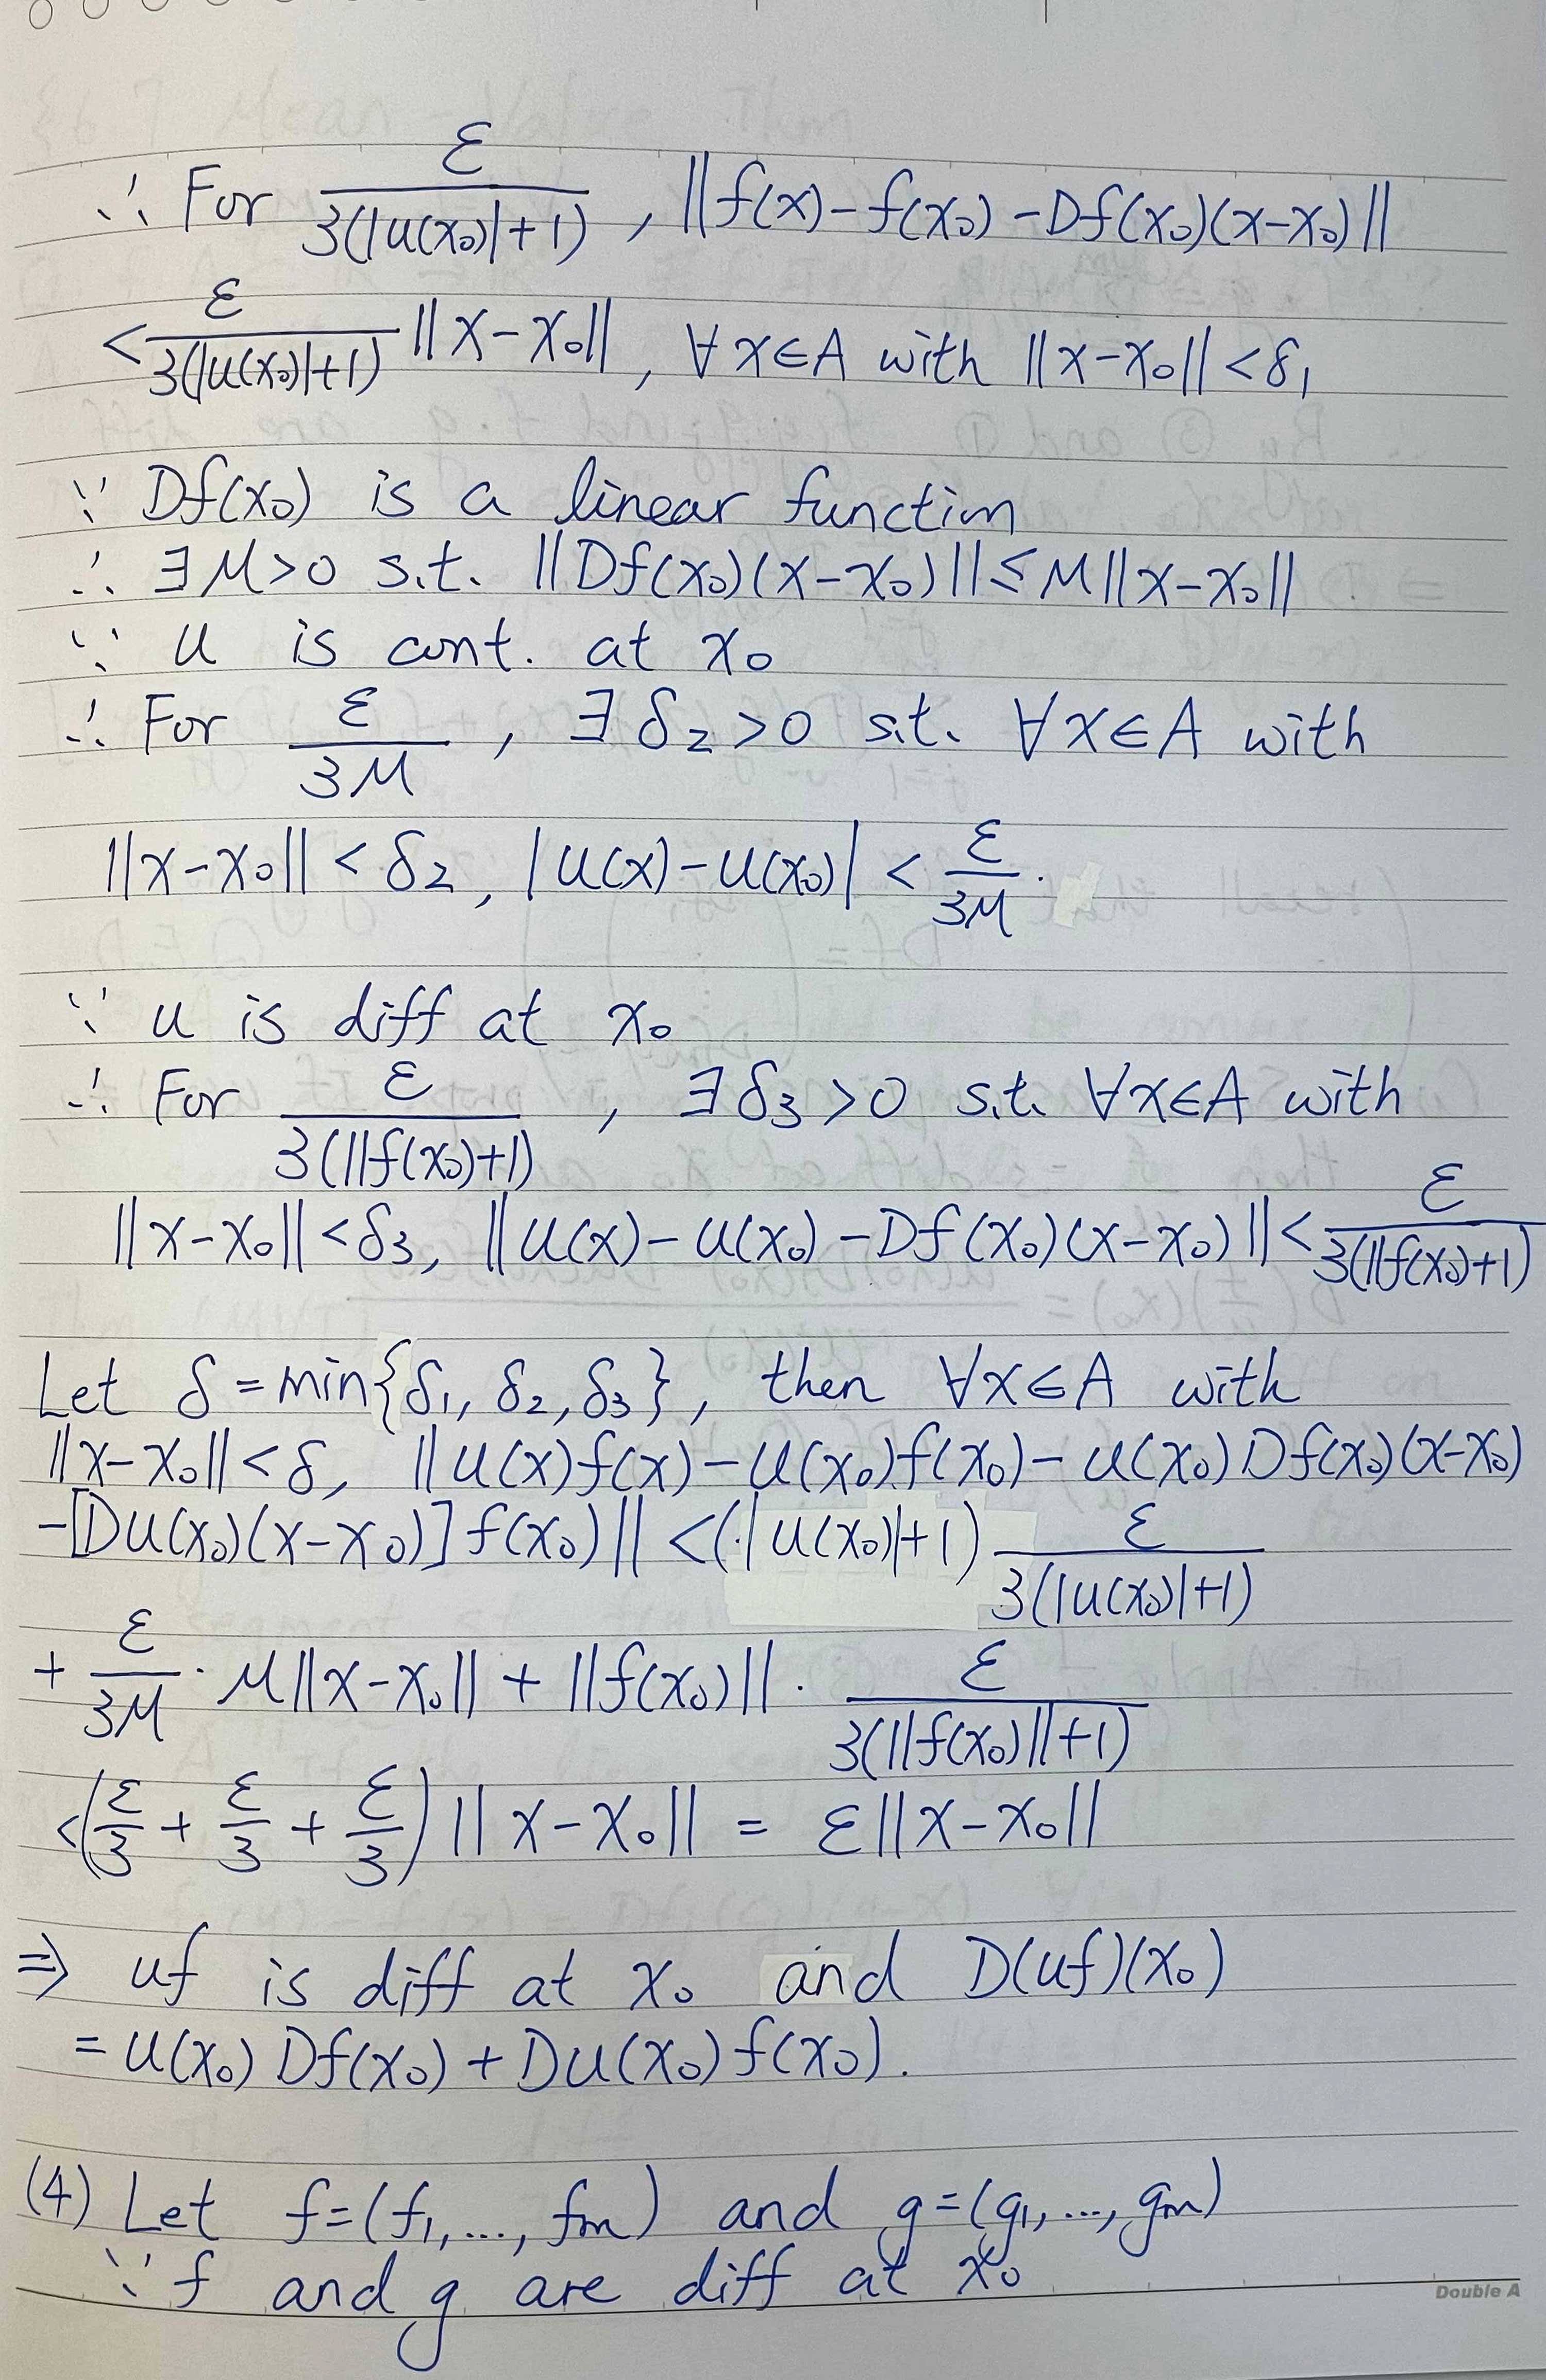 ∴ For ε/(3(|u(x₀)|+1)), ||f(x)-f(x₀)-Df(x₀)(x-x₀)||
< ε/(3(|u(x₀)|+1)) ||x-x₀||, ∀x∈A with ||x-x₀||<δ₁
∵ Df(x₀) is a linear function
∴ ∃M>0 s.t. ||Df(x₀)(x-x₀)||≤M||x-x₀||
∵ u is cont. at x₀
∴ For ε/(3M), ∃δ₂>0 s.t. ∀x∈A with
||x-x₀||<δ₂, |u(x)-u(x₀)| < ε/(3M).
∵ u is diff at x₀
∴ For ε/(3(||f(x₀)+1)), ∃δ₃>0 s.t. ∀x∈A with
||x-x₀||<δ₃, ||u(x)-u(x₀)-Df(x₀)(x-x₀)||< ε/(3(||f(x₀)+1))
Let δ=min{δ₁,δ₂,δ₃}, then ∀x∈A with
||x-x₀||<δ, ||u(x)f(x)-u(x₀)f(x₀)-u(x₀)Df(x₀)(x-x₀)
-[Du(x₀)(x-x₀)]f(x₀)|| <(|u(x₀)|+1) ε/(3(|u(x₀)|+1))
+ ε/(3M) · M||x-x₀|| + ||f(x₀)|| · ε/(3(||f(x₀)||+1))
<(ε/3 + ε/3 + ε/3)||x-x₀|| = ε||x-x₀||
⇒ uf is diff at x₀ and D(uf)(x₀)
= u(x₀)Df(x₀)+Du(x₀)f(x₀).
(4) Let f=(f₁,...,fm) and g=(g₁,...,gm)
∵ f and g are diff at x₀
Double A